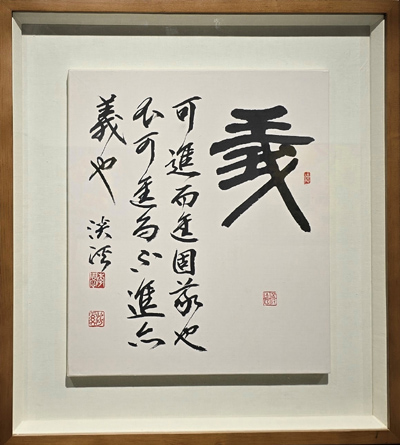 義
可進而進固義也
不可進而不進亦
義也